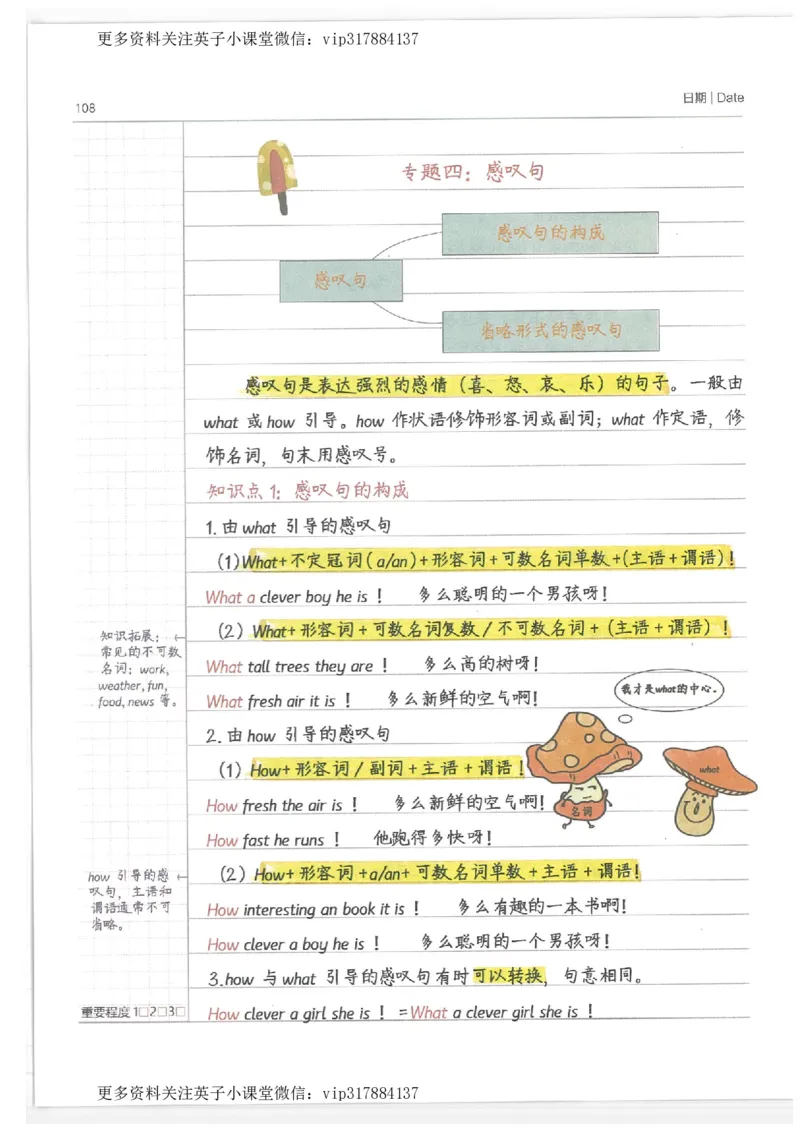 更多资料关注英子小课堂微信：vip317884137
108
日期 | Date
专题四：感叹句
感叹句的构成
感叹句
省略形式的感叹句
感叹句是表达强烈的感情（喜、怒、哀、乐）的句子。一般由
what 或 how 引导。how 作状语修饰形容词或副词；what 作定语，修
饰名词，句末用感叹号。
知识点 1：感叹句的构成
1.由 what 引导的感叹句
(1)What+不定冠词(a/an)+形容词+可数名词单数+(主语+谓语)!
What a clever boy he is！ 多么聪明的一个男孩呀！
（2）What+形容词+可数名词复数/不可数名词+（主语+谓语）！
知识拓展：
常见的不可数
名词：work,
weather, fun,
food, news 等。
What tall trees they are！ 多么高的树呀！
What fresh air it is！ 多么新鲜的空气啊！
我才是what的中心。
2.由 how 引导的感叹句
（1）How+形容词/副词+主语+谓语！
what
名词
How fresh the air is！ 多么新鲜的空气啊！
How fast he runs！ 他跑得多快呀！
how 引导的感
叹句，主语和
谓语通常不可
省略。
（2）How+形容词+a/an+可数名词单数+主语+谓语！
How interesting an book it is！ 多么有趣的一本书啊！
How clever a boy he is！ 多么聪明的一个男孩呀！
3.how 与 what 引导的感叹句有时可以转换，句意相同。
How clever a girl she is！=What a clever girl she is！
重要程度 1□2□3□
更多资料关注英子小课堂微信：vip317884137